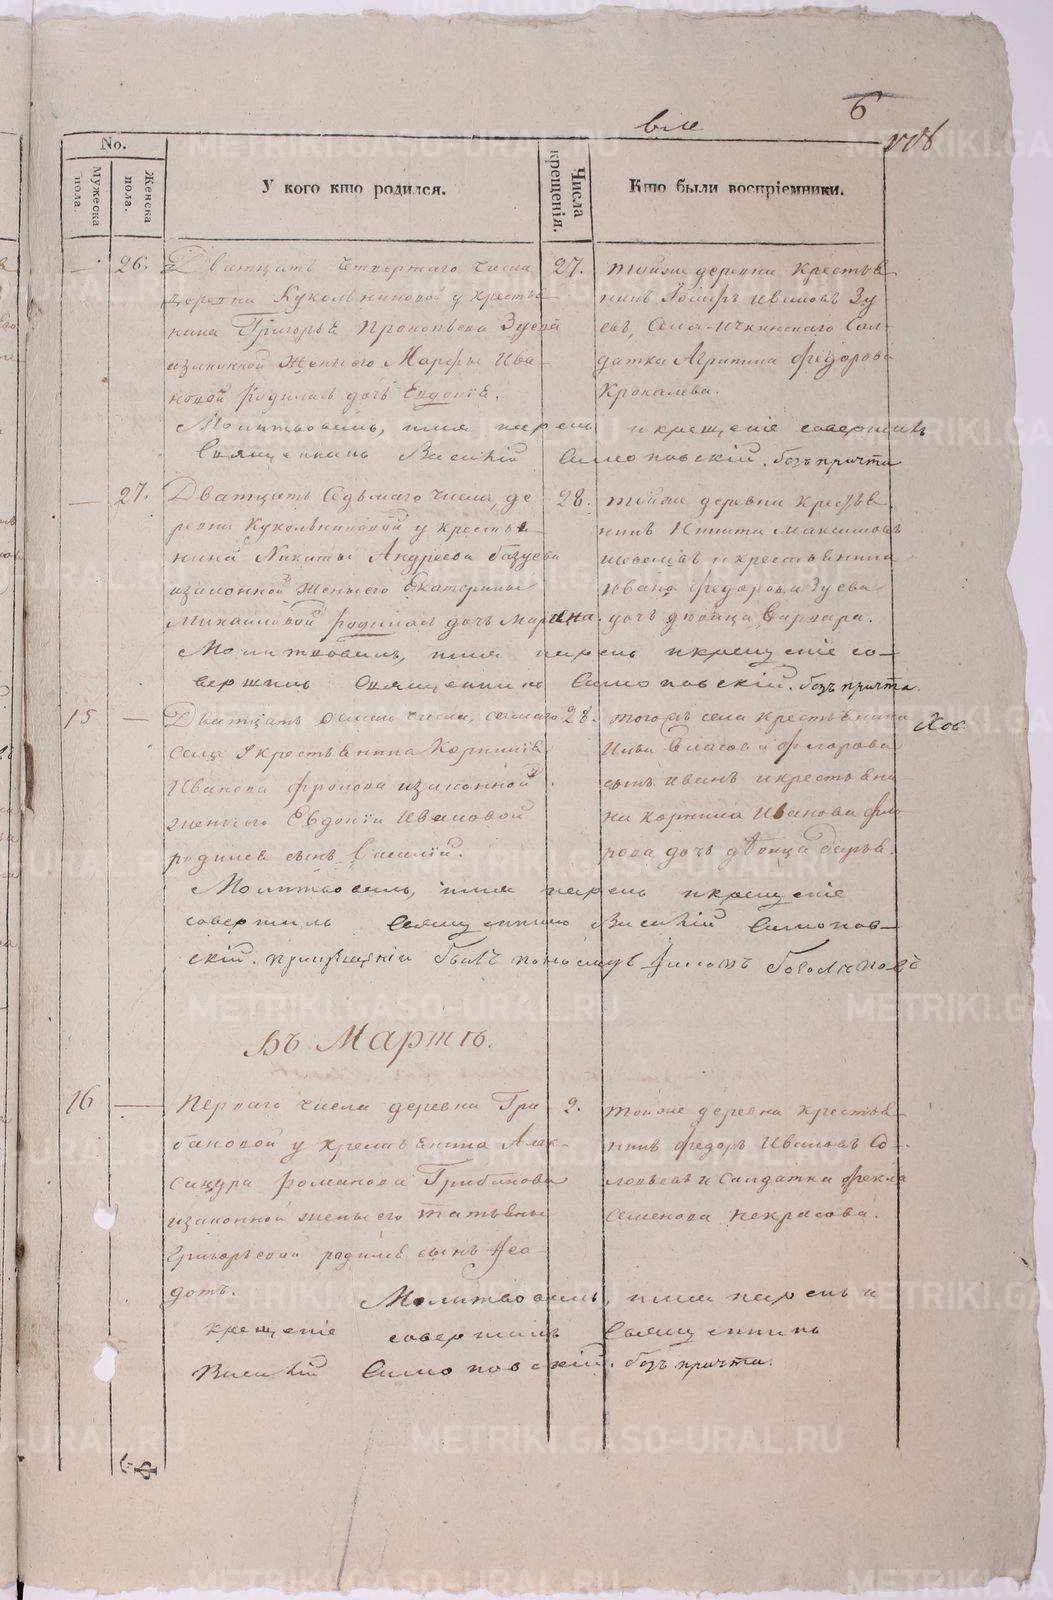 6
No.
Мужеска пола.
Женска пола.
У кого кто родился.
Числа крещенія.
Кто были воспріемники.
26.
Дватцать четвертаго числа
деревни Кукольниковой у крестья
нина Григорья Прокопьева Зуева
изаконной жены его Марфы Ива
новой родилась дочь Евдокія.
27.
тойже деревни крестья
нинъ Ивановъ Зу
евъ, Сол
датка Агрипина Федорова
Крокалева.
Молитвовалъ, имя нарекъ икрещеніе совершилъ
Священникъ Василій Симоновскій. безъ причта
27.
Дватцать Седьмаго числа, де
ревни Кукольниковой у крестья
нина Никиты Андреева
изаконной жены его Екатерины
Михайловой родилась дочь Марина.
28.
тойже деревни крестья
нинъ Никита Максимовъ
и крестьянина
Ивана Федорова Зуева
дочь девица Варвара.
Молитвовалъ, имя нарекъ икрещеніе со-
вершилъ Священникъ Симоновскій. безъ причта.
15
Дватцать осмаго числа, сегоже
села у крестьянина Корнилія
Иванова Фролова изаконной
жены его Евдокіи Ивановой
родился сынъ Василій.
28.
тогожъ села крестьянина
Ильи Власова Фролова
сынъ Иванъ икрестьяни
на Корнила Иванова Фло
рова дочь девица Дарья.
Молитвовалъ, имя нарекъ икрещеніе
совершилъ Священникъ Василій Симонов-
скій. прикрещеніи былъ пономарь
Въ Мартѣ.
16
Перваго числа деревни Гри
бановой у крестьянина Алек-
сандра Романова Грибанова
изаконной жены его Татьяны
Григорьевой родился сынъ Ѳео-
дотъ.
2.
тойже деревни крестья
нинъ Федоръ Ивановъ Со
ловьевъ и Солдатка Фекла
Семенова Некрасова.
Молитвовалъ, имя нарекъ и
крещеніе совершилъ Священникъ
Василій Симоновскій. безъ причта.
METRIKI.GASO-URAL.RU